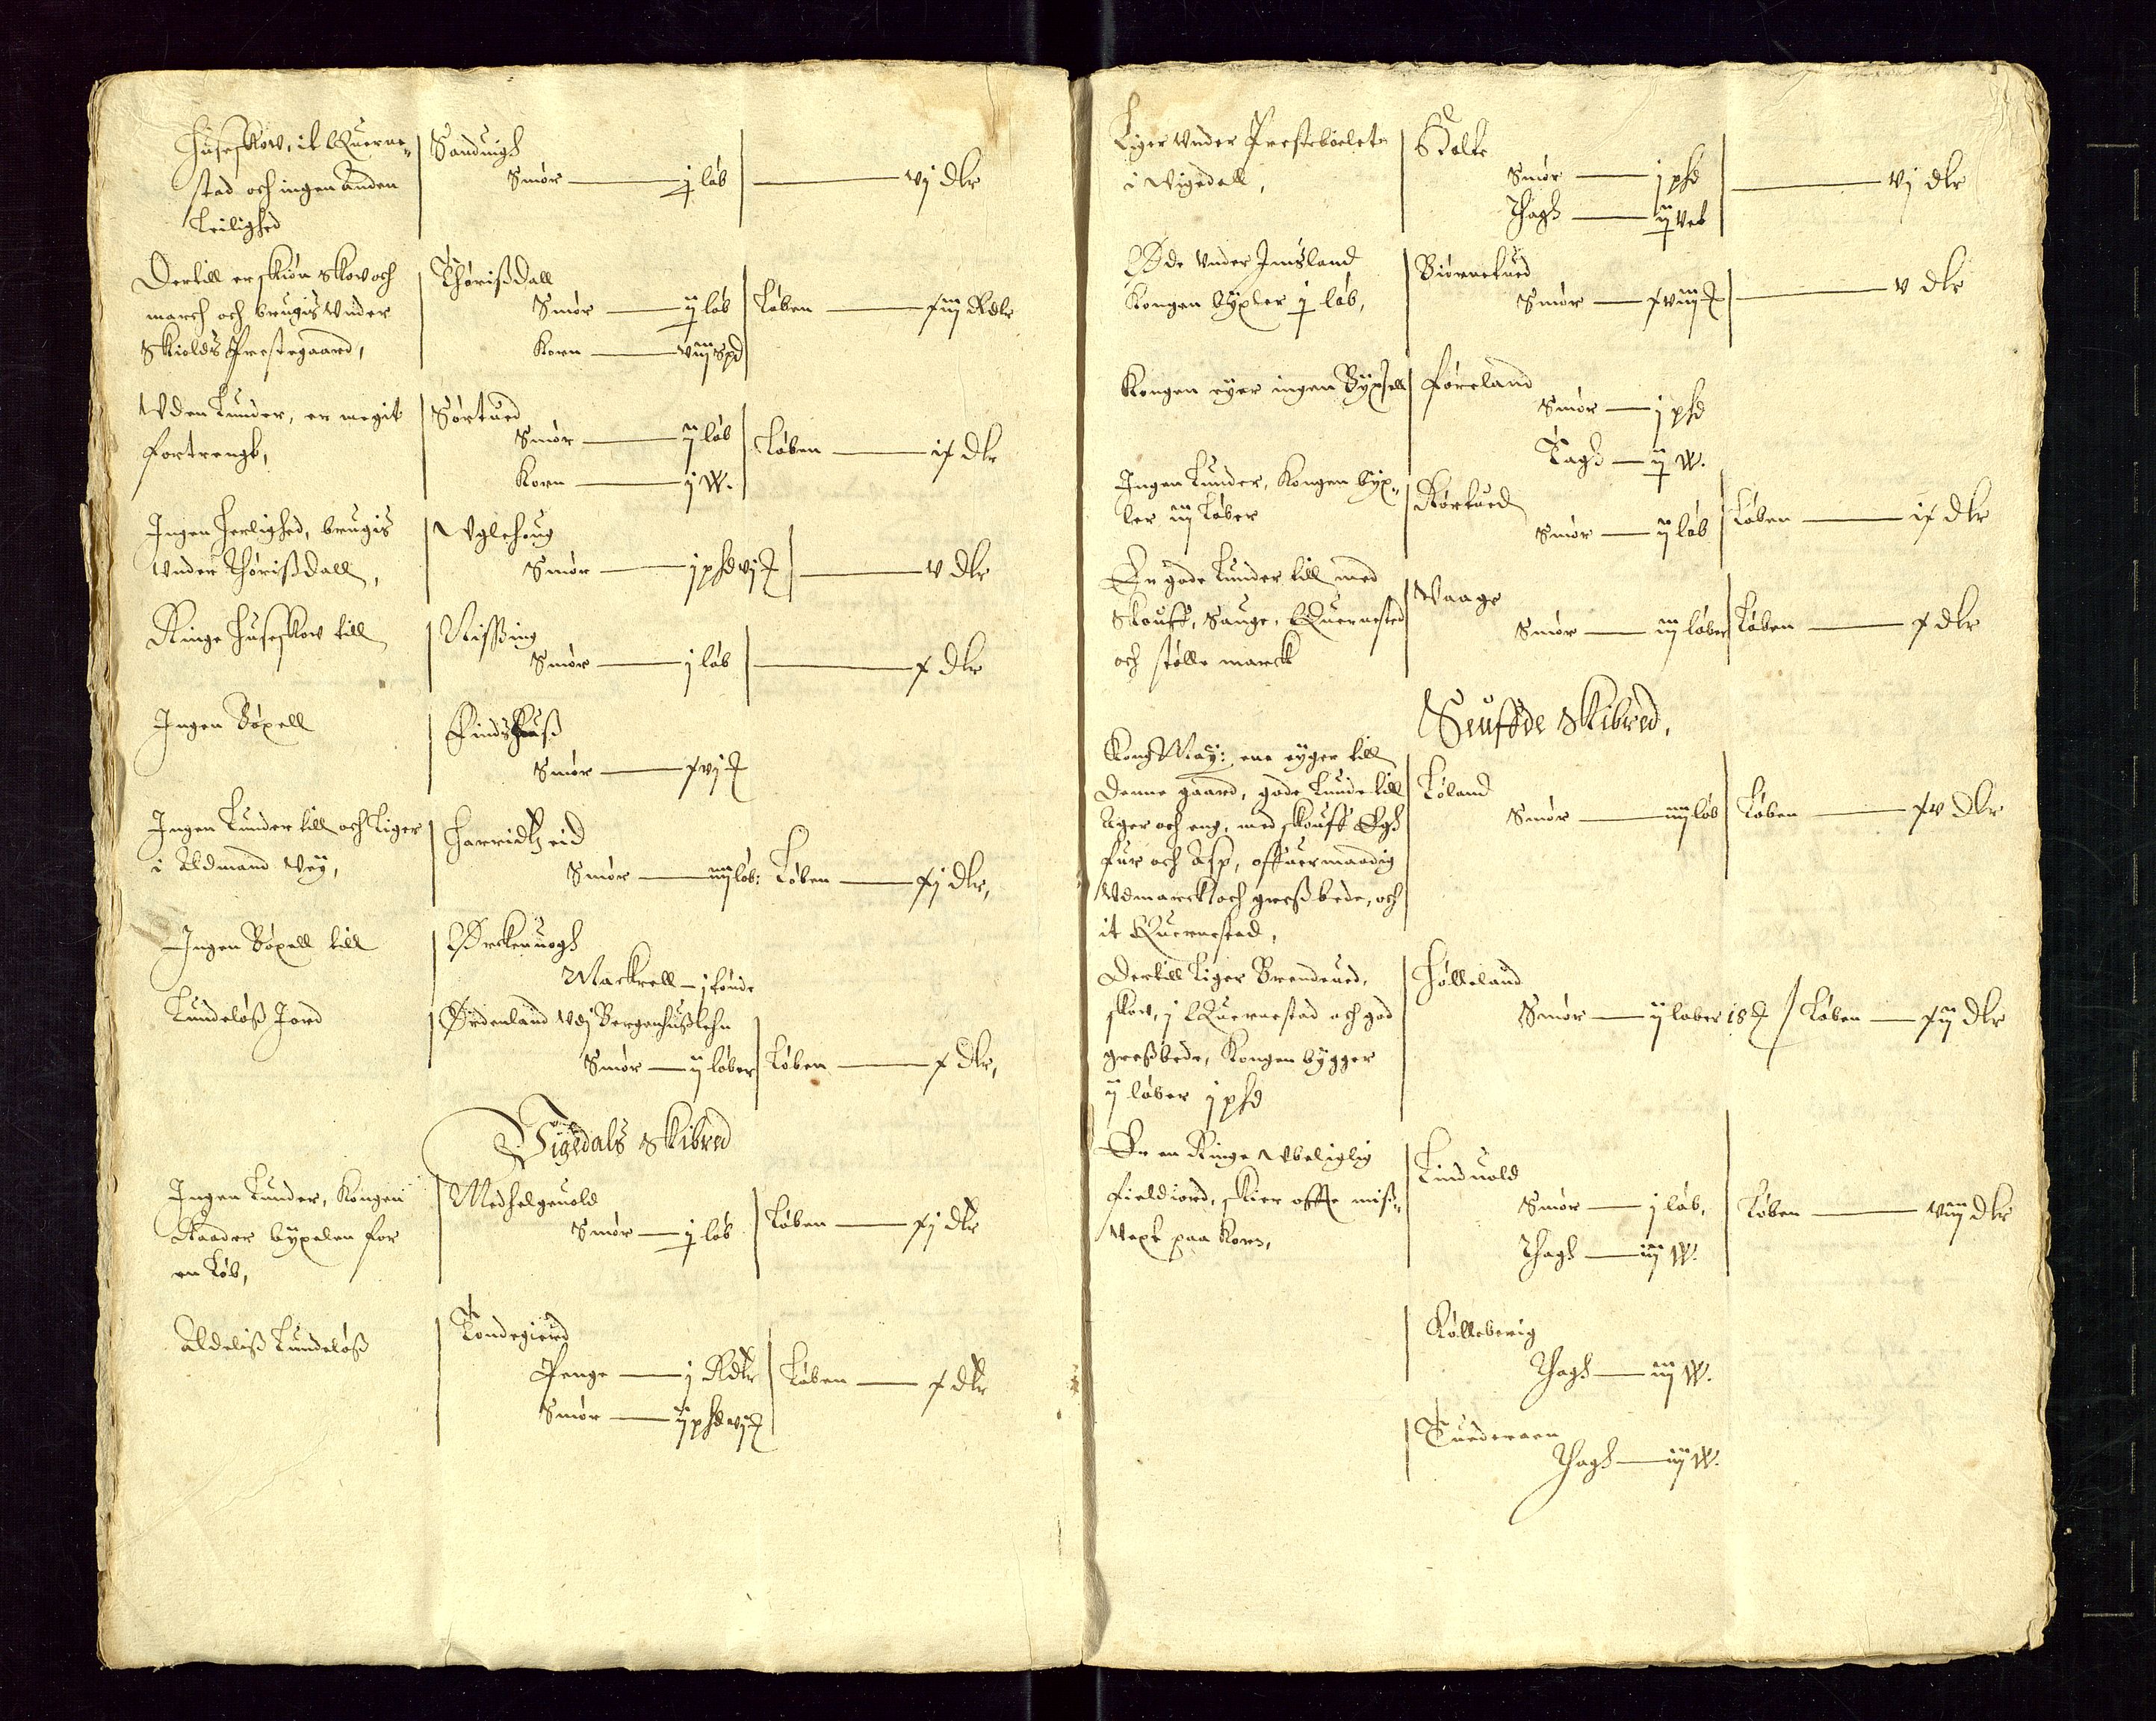 Huseskow, it Querne„
stad och ingen anden
Leilighed
Sanduigh
Smør — j løb — vj dlr
Dertill er skiøn skow och
march och brugis vnder
Skiolds Prestegaard,
Thørißdall
Smør — ij løb
Korn — viij spd
Løben — xiij Rdlr
Vden Lunder, er megit
fortrengt,
Sørtued
Smør — ij løb
Korn — j W.
Løben — ix dlr
Ingen Herlighed, brugis
vnder Thørißdall,
Vglehoug
Smør — j phd vj — v dlr
Ringe Huseskow till
Nissing
Smør — j løb — x dlr
Ingen Bøxell
Findshuß
Smør — xvj
Ingen Lunder till och Liger
i Aldmand vey,
Harridtz eid
Smør — iiij løb: Løben — xj dlr,
Ingen Bøxell till
Ørckenuogh
Mackrell — j tønde
Lundeløß Jord
Ørdenland vdj Bergenhußlehn
Smør — ij løber Løben — x dlr,
Vigedals Skibred
Ingen Lunder, Kongen
Raader byxelen for
en Løb,
Medhelgeuold
Smør — j løb Løben — xj dlr
Aldeliß Lundeløß
Tondegierd
Penge — j Rdlr
Smør — ij phd vj
Løben — x dlr
Liger vnder Prestebolet
i Vigedall,
Holte
Smør — j phd
Thagh — ij veb
— vj dlr
Øde vnder Imsland
Kongen byxler j løb,
Biørnetued
Smør — xviij — v dlr
Kongen eyer ingen Byxell
Føreland
Smør — j phd
Tagh — ij W.
Ingen Lunder, Kongen byx„
ler iij Løber
Rørtued
Smør — ij løb Løben — ix dlr
Er gode Lunder till med
Skouff, Sauge, Quernested
och stølle marck
Vaage
Smør — iij løber Løben — x dlr
Seuffde Skibred,
Kong May: ene eyger till
denne gaard, gode Lunde till
Ager och eng, med skouff Egh
fur och Asp, offuermaadig
vdmarck och greßbede, och
it Quernestad,
Løland
Smør — iiij løb Løben — xv dlr
Dertill Liger Brendeued,
skow, j Quernestad och god
greßbede, Kongen bygger
ij løber j phd
Hølleland
Smør — ij løber 18 Løben — xij dlr
Er en Ringe vbeliglig
fieldiord, skier offte miß„
vext paa Korn,
Linduold
Smør — j løb,
Thagh — iij W.
Løben — viij dlr
Kølleberig
Thagh — iij W.
Tuederaen
Thagh — iij W.